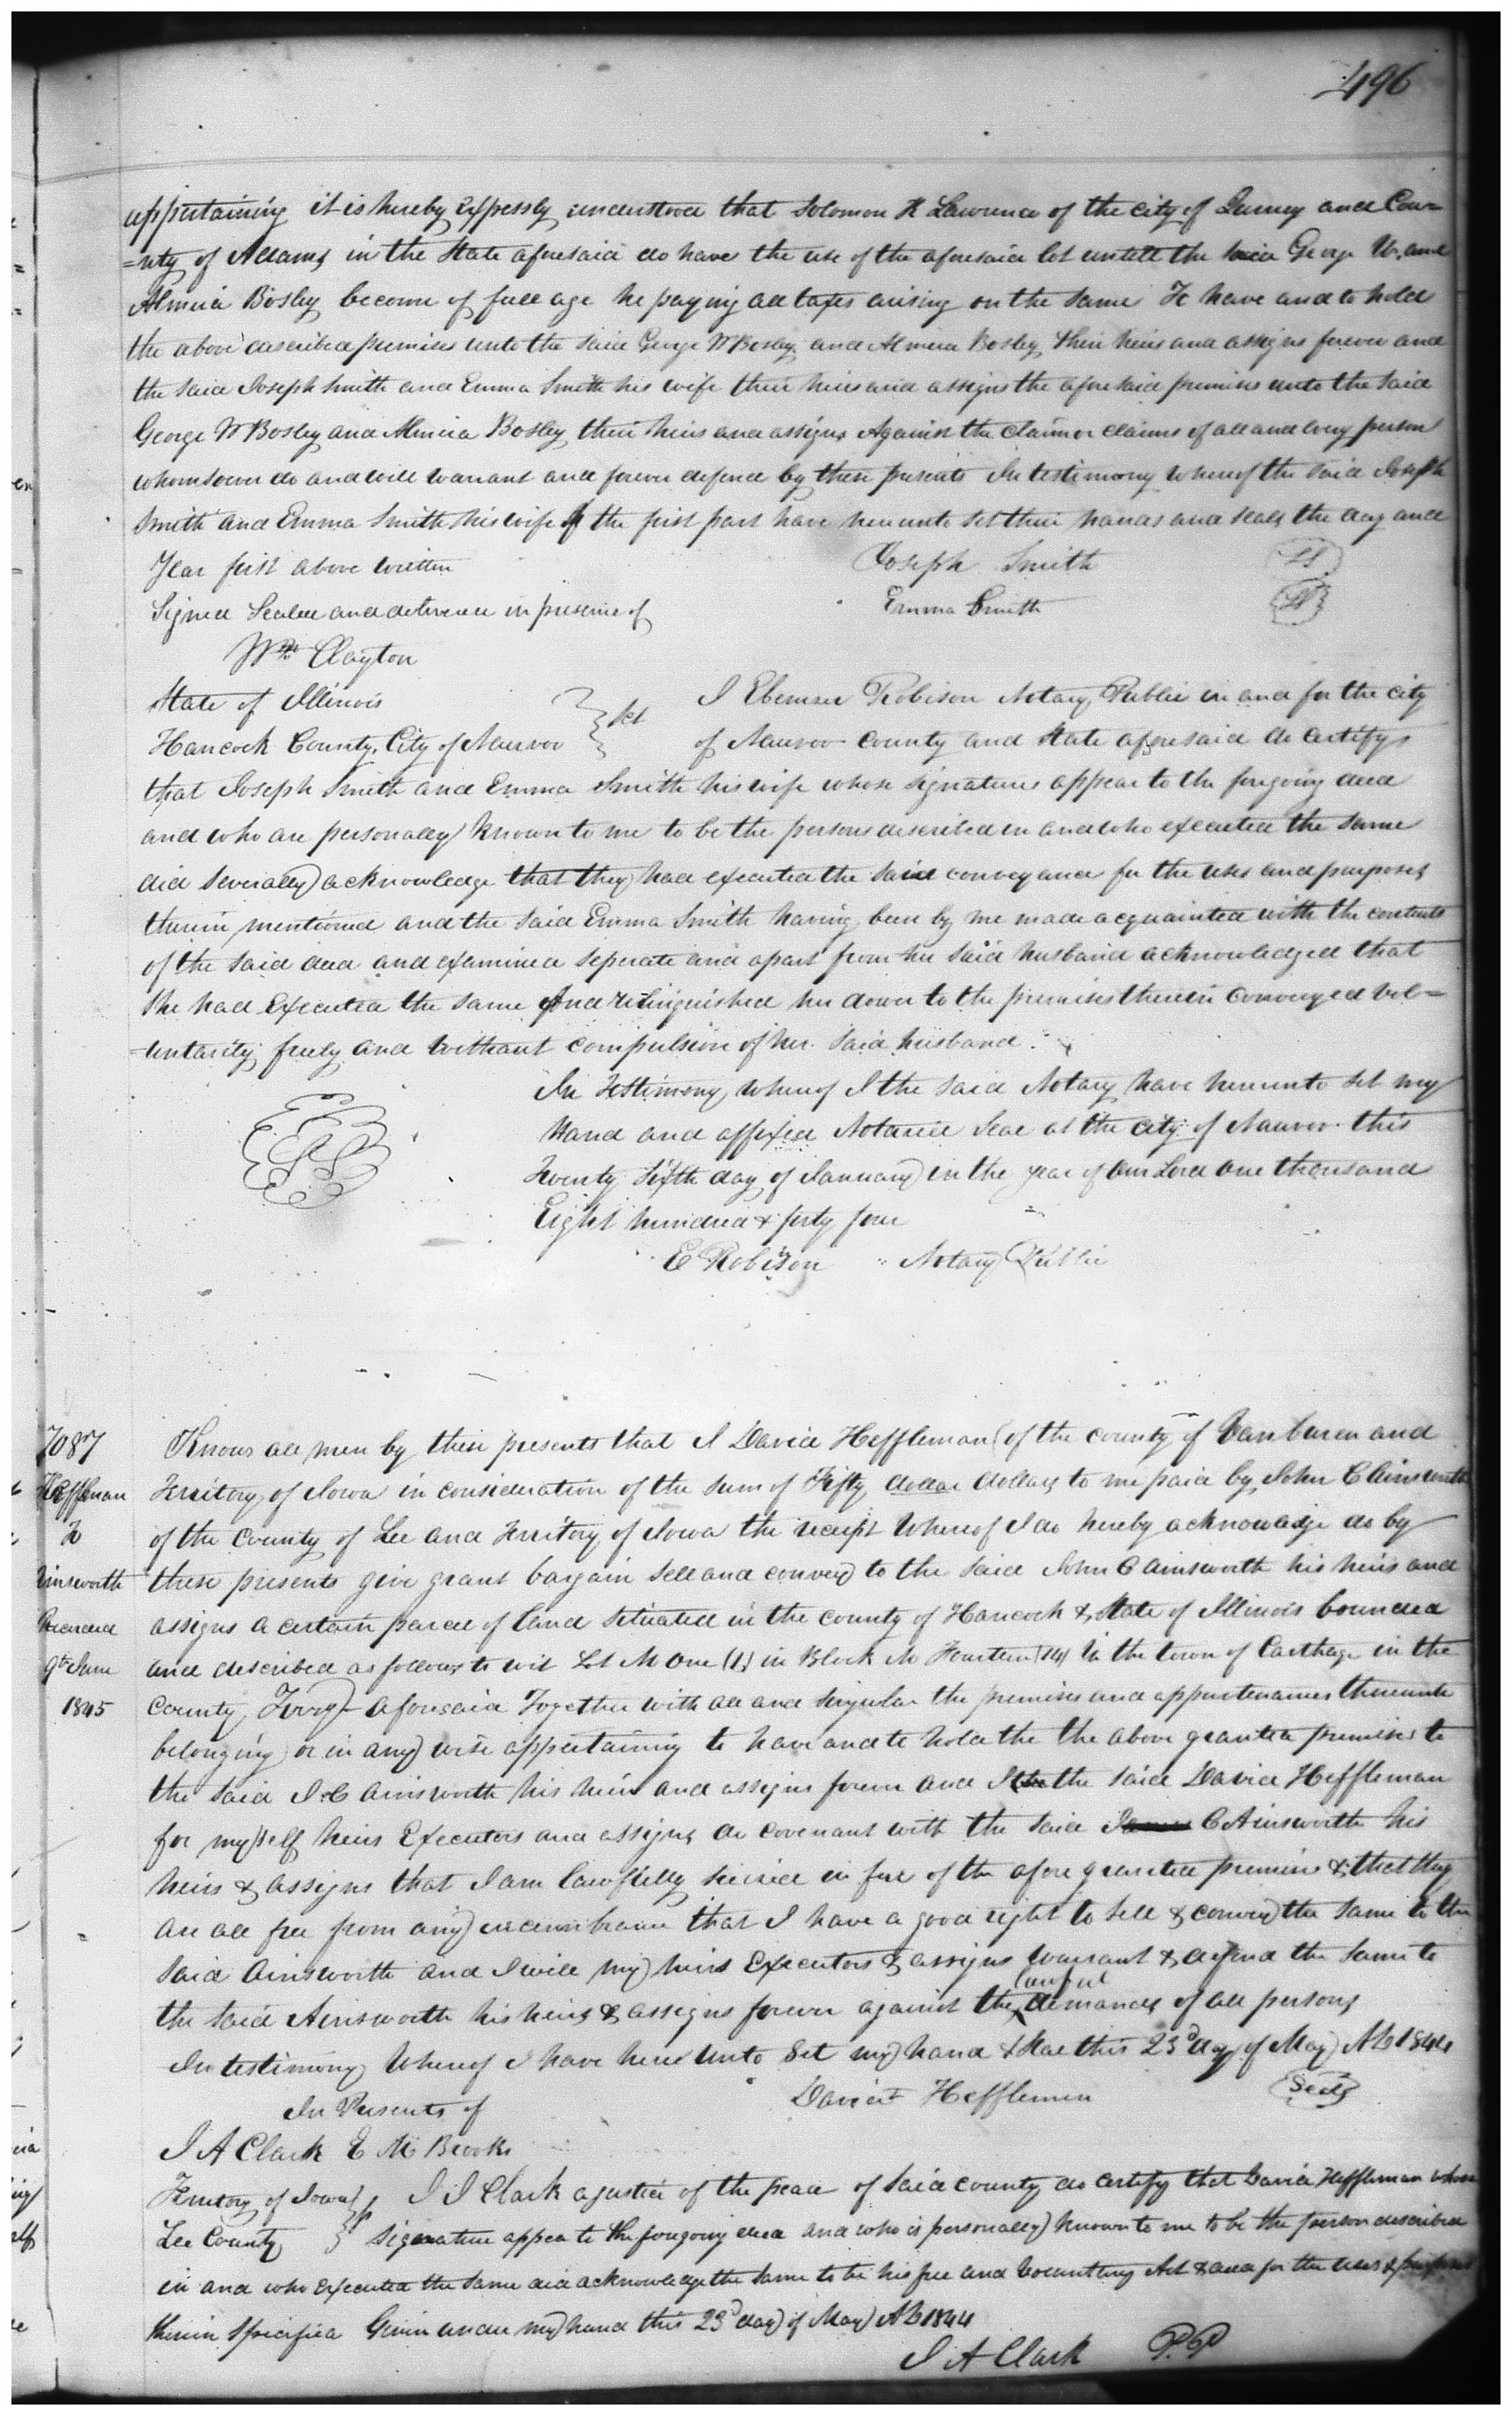 496
appertaining it is hereby expressly understood that Solomon R Lawrence of the city of Quincy and Cou=
=nty of Adams in the State aforesaid do have the use of the aforesaid lot untill the said George W. and
Almira Bosley become of full age he paying all taxes arising on the same To have and to hold
the above described premises unto the said George W Bosley and Almira Bosley their heirs and assigns forever and
the said Joseph Smith and Emma Smith his wife their heirs and assigns the aforesaid premises unto the said
George W Bosley and Almira Bosley their heirs and assigns Against the claim or claims of all and every person
whomsoever do and will warrant and forever defend by these presents In testimony whereof the said Joseph
Smith and Emma Smith his wife of the first part have hereunto set their hands and seals the day and
Year first above written Joseph Smith LS
Signed Sealed and delivered in presence of Emma Smith LS
Wm Clayton
State of Illinois } Sct I Ebenezer Robison Notary Public in and for the city
Hancock County, City of Nauvoo of Nauvoo county and State aforesaid do certify
that Joseph Smith and Emma Smith his wife whose signatures appear to the foregoing deed
and who are personally known to me to be the persons described in and who executed the same
did severally acknowledge that they had executed the said conveyance for the uses and purposes
therein mentioned and the said Emma Smith having been by me made acquainted with the contents
of the said deed and examined seperate and apart from her said husband acknowledged that
she had Executed the same And relinquished her dower to the premises therein conveyed vol=
=untarily freely and without compulsion of her said husband.
In Testimony whereof I the said Notary have hereunto set my
Hand and affixed Notarial Seal at the city of Nauvoo this
Twenty Sixth day of January in the year of Our Lord One thousand
Eight hundred & forty four
E Robison Notary Public
7087 Know all men by these presents that I David Heffleman of the county of Vanburen and
Heffleman Territory of Iowa in consideration of the sum of Fifty dollar dollars to me paid by John C Ainsworth
To of the County of Lee and Territory of Iowa the receipt whereof I do hereby acknowledge do by
Ainsworth these presents give grant bargain sell and convey to the said John C Ainsworth his heirs and
Recorded assigns a certain parcel of land situated in the county of Hancock & State of Illinois bounded
9th June and described as follows to wit Lot No One (1) in Block No Fourteen (14) in the town of Carthage in the
1845 County aforesaid Together with all and singular the premises and appurtenances thereunto
belonging or in any wise appertaining to have and to hold the the above granted premises to
the said J C Ainsworth his heirs and assigns forever and I the the said David Heffleman
for myself heirs Executors and assigns do covenant with the said C Ainsworth his
heirs & assigns that I am lawfully seized in fee of the afore granted premises & that they
are all free from any incumbrance that I have a good right to sell & convey the same to the
said Ainsworth and I will my heirs Executors & assigns warrant & defend the same to
the said Ainsworth his heirs & assigns forever against the lawful demands of all persons
In testimony Whereof I have here unto Set my hand & Seal this 23d day of May AD 1844
In Presents of David Heffleman Seal
J A Clark E M Brooks
Territory of Iowa } I J Clark a justice of the peace of said county do certify that David Heffleman whose
Lee County } signature appea to the foregoing deed and who is personally known to me to be the person described
in and who executed the same did acknowledge the same to be his free and Voluntery Act & deed for the uses & purposes
therein Specified Given under my hand this 23d day of May AD 1844
J A Clark P.P